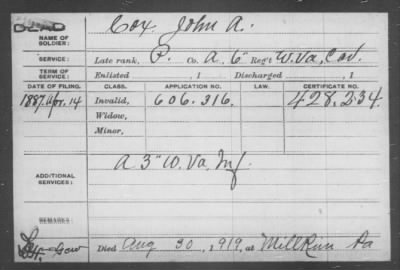 DEAD
NAME OF SOLDIER: Cox, John A.
SERVICE: Late rank, P. Co. A, 6" Reg't W. Va. Cav.
TERM OF SERVICE: Enlisted , 1 Discharged , 1
DATE OF FILING. CLASS. APPLICATION NO. LAW. CERTIFICATE NO.
1887 Apr. 14 Invalid, 606.316. 428.234.
Widow,
Minor,
ADDITIONAL SERVICES: A 3" W. Va. Inf.
REMARKS:
Died Aug 30, 1919, at Mill Run Pa